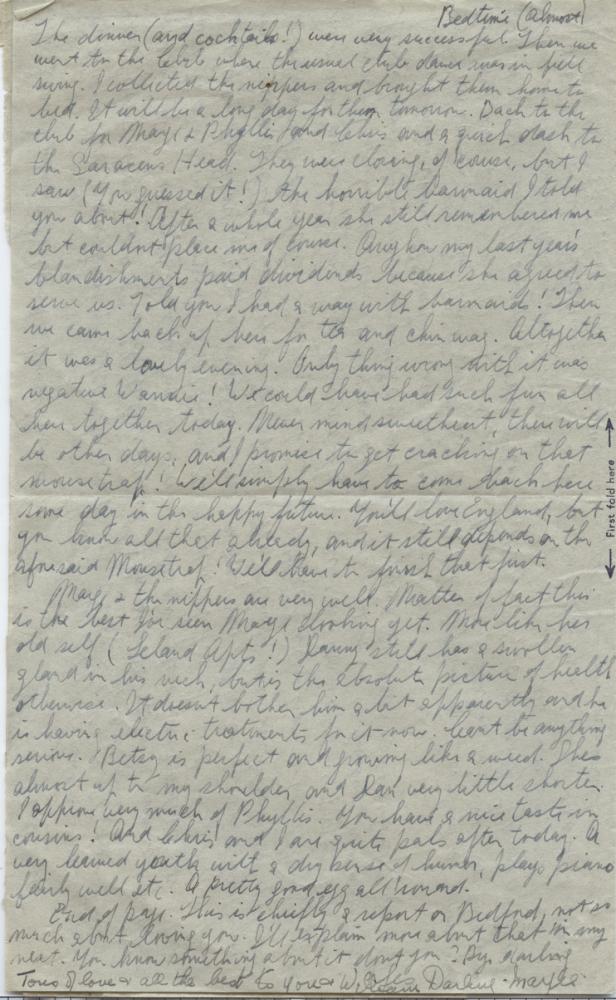 Bedtime (almost)
The dinner (and cocktails!) were very successful. Then we
went to the club where the usual club dance was in full
swing. I collected the nippers and brought them home to
bed. It will be a long day for them tomorrow. Back to the
club for Marge & Phyllis and Chris and a quick dash to
the Saracens Head. They were closing, of course, but I
saw (You guessed it!) the horrible barmaid I told
you about! After a whole year she still remembered me
but couldn't place me of course. Anyhow my last year's
blandishments paid dividends because she agreed to
serve us. Told you I had a way with barmaids! Then
we came back up here for tea and chin wag. Altogether
it was a lovely evening. Only thing wrong with it was
negative Wannie! We could have had such fun all
here together today. Never mind sweetheart, there will
be other days, and I promise to get cracking on that
mousetrap! We'll simply have to come back here
some day in the happy future. You'll love England, but
you know all that already, and it still depends on the
aforesaid Mousetrap! We'll have to finish that first.
Marge & the nippers are very well. Matter of fact this
is the best I've seen Marge looking yet. More like her
old self (Leland Apts!) Danny still has a swollen
gland in his neck, but is the absolute picture of health
otherwise. It doesn't bother him a bit apparently and he
is having electric treatments for it now. Can't be anything
serious. Betsy is perfect and growing like a weed. She's
almost up to my shoulder, and Dan very little shorter.
I approve very much of Phyllis. You have a nice taste in
cousins! And Chris and I are quite pals after today. A
very learned youth with a dry sense of humor, plays piano
fairly well etc. A pretty good egg all 'round.
End of page. This is chiefly a report on Bedford, not so
much about loving you. I'll explain more about that in my
next. You know something about it don't you? Bye darling
Tons of love & all the best to you & Darling - Marge
First fold here